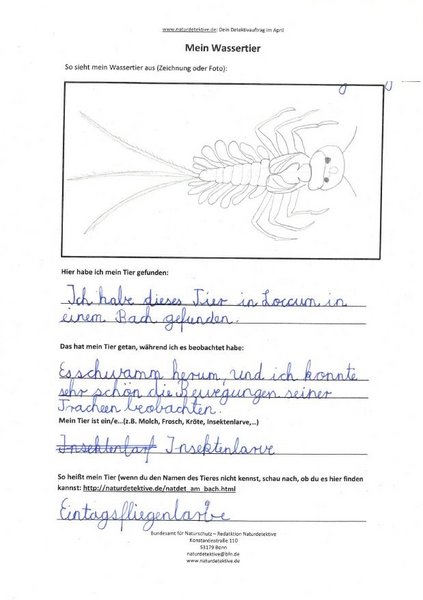 www.naturdetektive.de: Dein Detektivauftrag im April
Mein Wassertier
So sieht mein Wassertier aus (Zeichnung oder Foto):
Hier habe ich mein Tier gefunden:
Ich habe dieses Tier in Loccum in
einem Bach gefunden.
Das hat mein Tier getan, während ich es beobachtet habe:
Es schwamm herum, und ich konnte
sehr schön die Bewegungen seiner
Tracheen beobachten.
Mein Tier ist ein/e...(z.B. Molch, Frosch, Kröte, Insektenlarve,..)
Insektenlarf Insektenlarve
So heißt mein Tier (wenn du den Namen des Tieres nicht kennst, schau nach, ob du es hier finden
kannst: http://naturdetektive.de/natdet_am_bach.html
Eintagsfliegenlarve
Bundesamt für Naturschutz – Redaktion Naturdetektive
Konstantinstraße 110
53179 Bonn
naturdetektive@bfn.de
www.naturdetektive.de